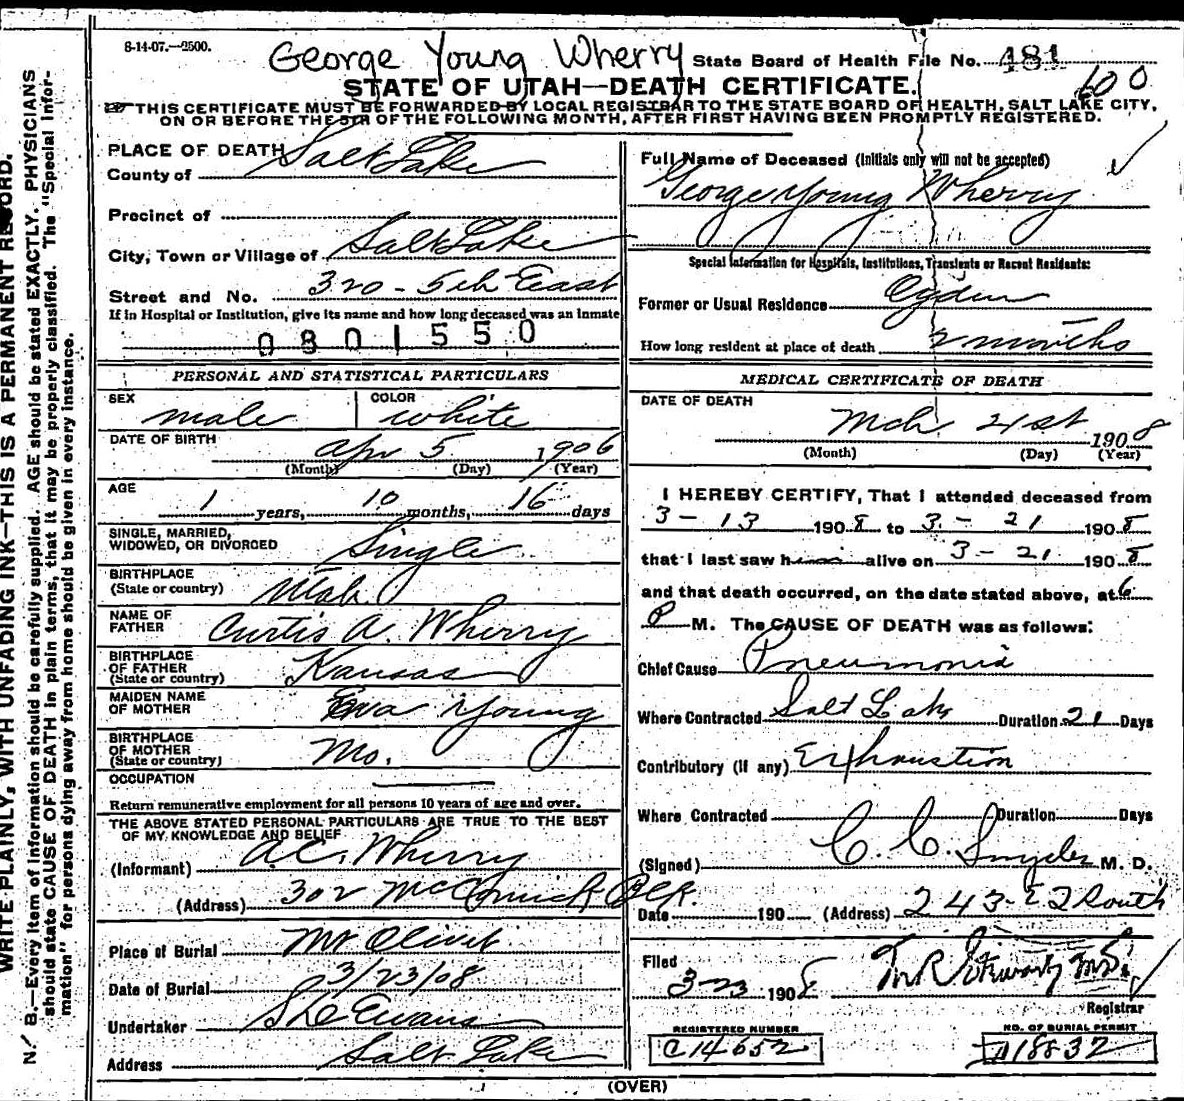 8-14-07.—2500.
George Young Wherry
State Board of Health File No. 481
600
STATE OF UTAH—DEATH CERTIFICATE.
THIS CERTIFICATE MUST BE FORWARDED BY LOCAL REGISTRAR TO THE STATE BOARD OF HEALTH, SALT LAKE CITY,
ON OR BEFORE THE 5TH OF THE FOLLOWING MONTH, AFTER FIRST HAVING BEEN PROMPTLY REGISTERED.
PLACE OF DEATH
County of Salt Lake
Precinct of
City, Town or Village of Salt Lake
Street and No. 320 - 5th East
If in Hospital or Institution, give its name and how long deceased was an inmate
0801550
PERSONAL AND STATISTICAL PARTICULARS
SEX male COLOR white
DATE OF BIRTH Apr 5 1906
(Month) (Day) (Year)
AGE 1 years, 10 months, 16 days
SINGLE, MARRIED,
WIDOWED, OR DIVORCED Single
BIRTHPLACE
(State or country) Utah
NAME OF
FATHER Curtis A. Wherry
BIRTHPLACE
OF FATHER
(State or country) Kansas
MAIDEN NAME
OF MOTHER Eva Young
BIRTHPLACE
OF MOTHER
(State or country) Mo.
OCCUPATION
Return remunerative employment for all persons 10 years of age and over.
THE ABOVE STATED PERSONAL PARTICULARS ARE TRUE TO THE BEST
OF MY KNOWLEDGE AND BELIEF
(Informant) A.C. Wherry
(Address) 302 McCornick Blk.
Place of Burial Mt Olivet
Date of Burial 3/23/08
Undertaker Evans
Address Salt Lake
Full Name of Deceased (Initials only will not be accepted)
George Young Wherry
Special Information for Hospitals, Institutions, Transients or Recent Residents:
Former or Usual Residence Ogden
How long resident at place of death 2 months
MEDICAL CERTIFICATE OF DEATH
DATE OF DEATH
Mch 21st 1908
(Month) (Day) (Year)
I HEREBY CERTIFY, That I attended deceased from
3-13 1908 to 3-21 1908
that I last saw him alive on 3-21 1908
and that death occurred, on the date stated above, at 6
P M. The CAUSE OF DEATH was as follows:
Chief Cause Pneumonia
Where Contracted Salt Lake Duration 21 Days
Contributory (if any) Exhaustion
Where Contracted Duration Days
(Signed) C. C. Snyder M. D.
Date 190 (Address) 243-E 2 South
Filed
3-23 1908
Registrar
REGISTERED NUMBER
C14652
NO. OF BURIAL PERMIT
A18832
(OVER)
WRITE PLAINLY, WITH UNFADING INK—THIS IS A PERMANENT RECORD.
N. B.—Every item of information should be carefully supplied. AGE should be stated EXACTLY. PHYSICIANS
should state CAUSE OF DEATH in plain terms, that it may be properly classified. The "Special Infor-
mation" for persons dying away from home should be given in every instance.